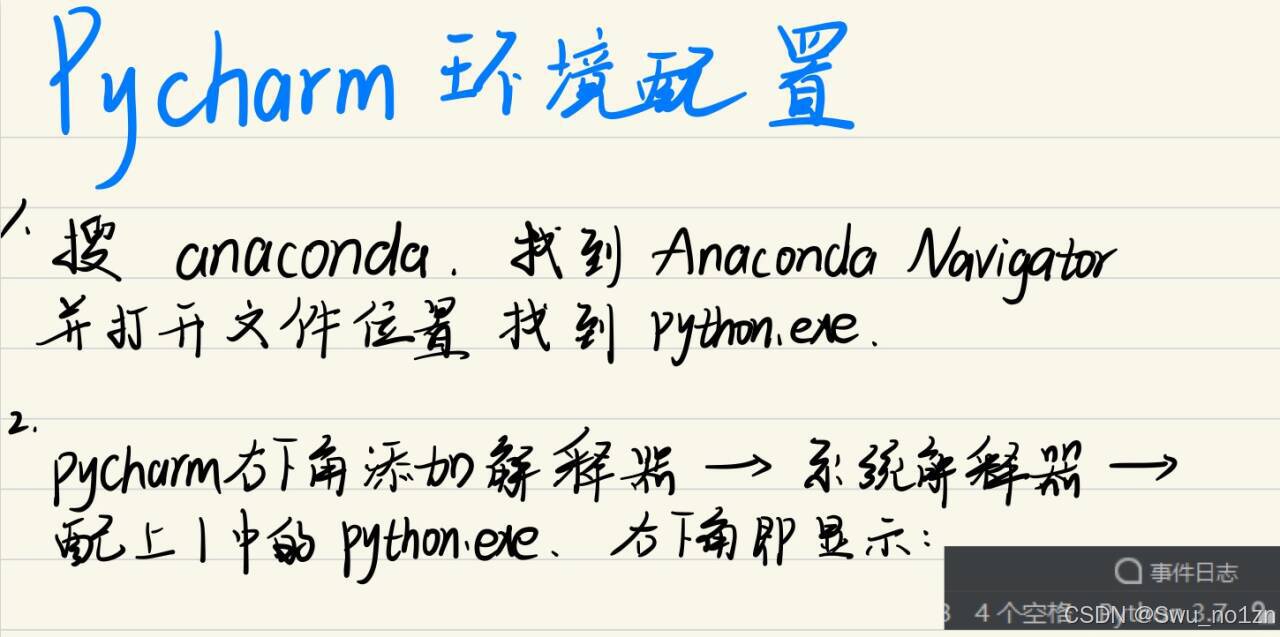 Pycharm 环境配置
1. 搜 anaconda. 找到 Anaconda Navigator
并打开文件位置 找到 python.exe.
2. pycharm右下角添加解释器 → 系统解释器 →
配上1中的 python.exe、右下角即显示:
事件日志
4个空格 Python 3.7
CSDN @Swu_no1zn